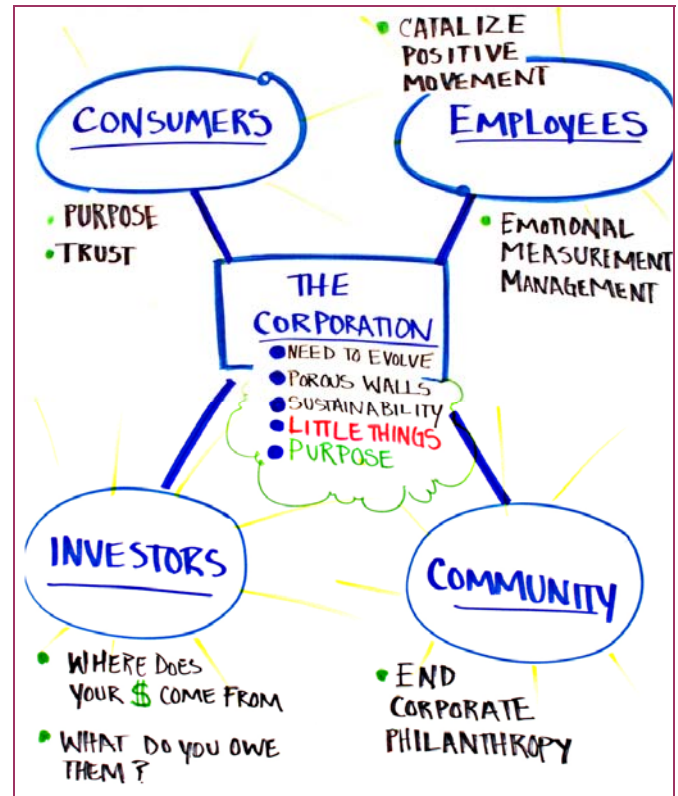 CATALIZE
POSITIVE
MOVEMENT
CONSUMERS
EMPLOYEES
PURPOSE
TRUST
EMOTIONAL
MEASUREMENT
MANAGEMENT
THE
CORPORATION
NEED TO EVOLVE
POROUS WALLS
SUSTAINABILITY
LITTLE THINGS
PURPOSE
INVESTORS
COMMUNITY
WHERE DOES
YOUR $ COME FROM
WHAT DO YOU OWE
THEM?
END
CORPORATE
PHILANTHROPY